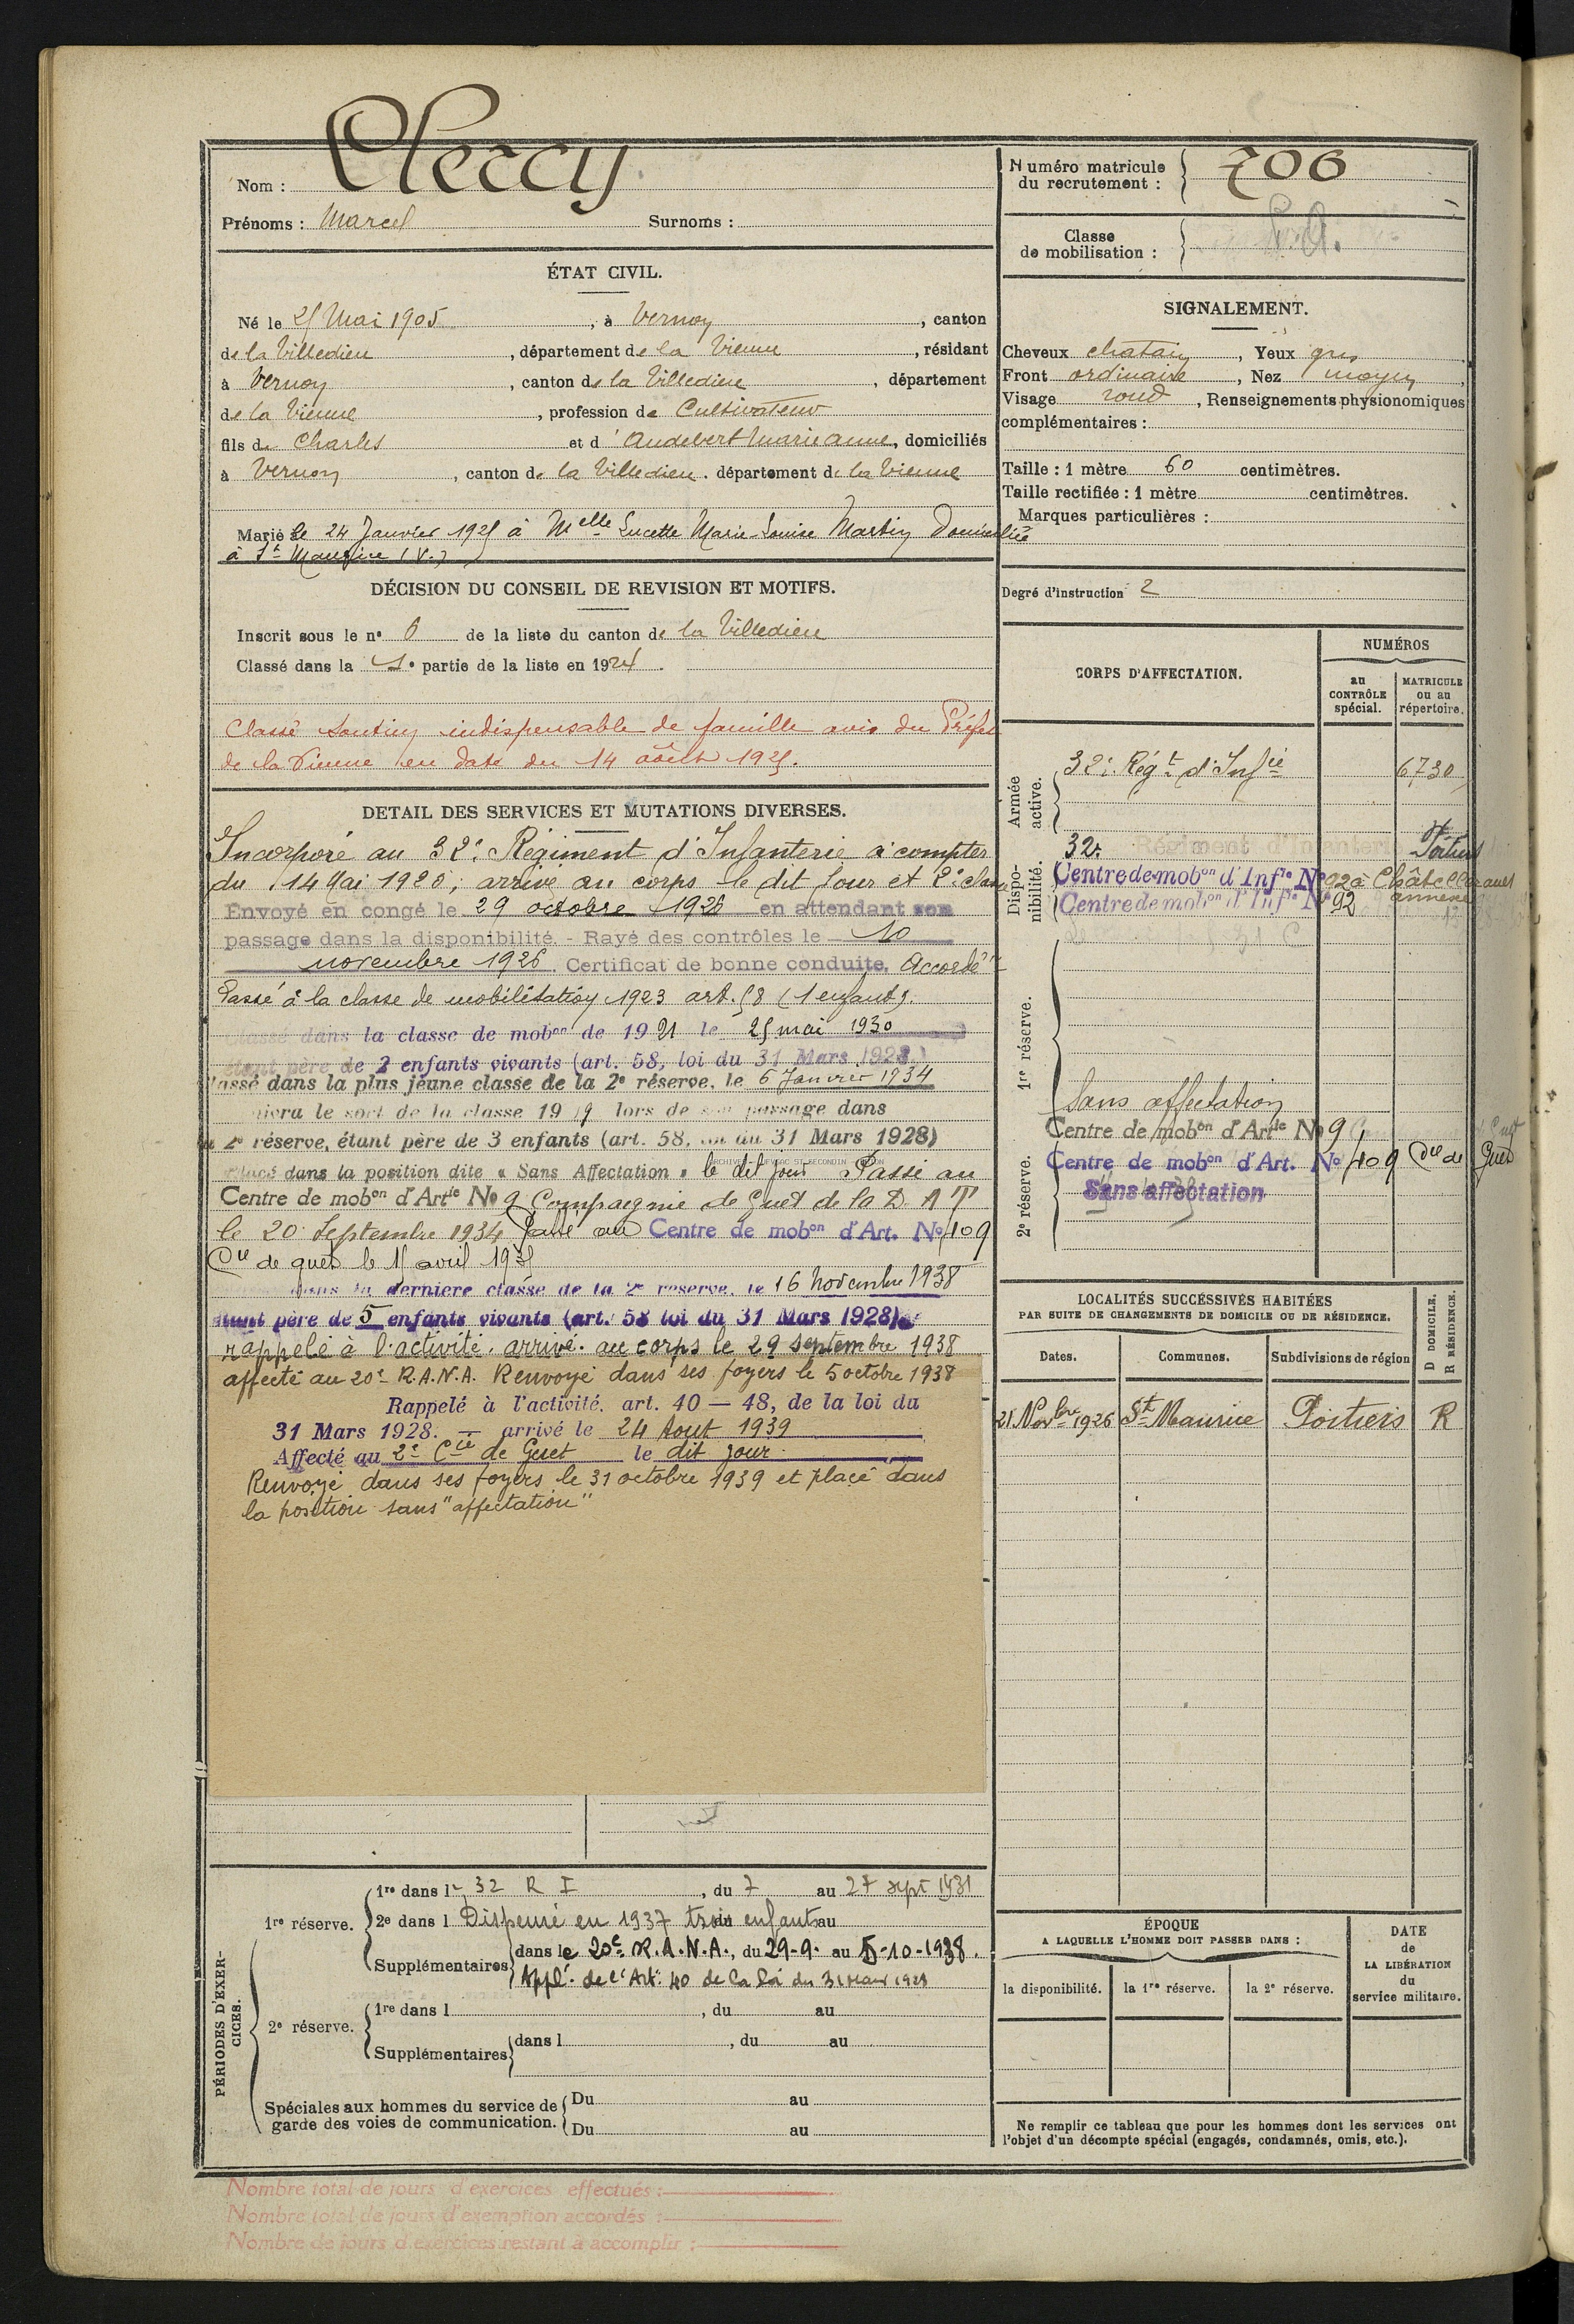 Nom : Clercy
Prénoms : Marcel Surnoms :
ÉTAT CIVIL.
Né le 25 Mai 1905, à Vernon, canton
de la Villedieu, département de la Vienne, résidant
à Vernon, canton de la Villedieu, département
de la Vienne, profession de Cultivateur
fils de Charles et d'Audebert Marie Anne, domiciliés
à Vernon, canton de la Villedieu. département de la Vienne
Marié le 24 Janvier 1925 à Melle Lucette Marie-Louise Martin Domiciliée
à St Maurice (V.)
DÉCISION DU CONSEIL DE REVISION ET MOTIFS.
Inscrit sous le n° 6 de la liste du canton de la Villedieu
Classé dans la 1e partie de la liste en 1924.
Classé soutien indispensable de famille avis du Préfet
de la Vienne en date du 14 août 1925.
DETAIL DES SERVICES ET MUTATIONS DIVERSES.
Incorporé au 32e Régiment d'Infanterie à compter
du 14 Mai 1925; arrivé au corps le dit jour et 2e classe
Envoyé en congé le 29 octobre 1926 en attendant son
passage dans la disponibilité. - Rayé des contrôles le 10
novembre 1926. Certificat de bonne conduite. Accordé
Passé à la classe de mobilisation 1923 art. 58 (1 enfant).
Classé dans la classe de mobon de 1921 le 25 mai 1930
étant père de 2 enfants vivants (art. 58, loi du 31 Mars 1928)
Passé dans la plus jeune classe de la 2e réserve, le 6 Janvier 1934
le sort de la classe 1919 lors de son passage dans
la 2e réserve, étant père de 3 enfants (art. 58, loi du 31 Mars 1928)
Placé dans la position dite « Sans Affectation » le dit jour Passé au
Centre de mobon d'Artie No 9 Compagnie de Guet de la D.A.T
le 20 Septembre 1934 Passé au Centre de mobon d'Art. No 409
Cie de guet le 15 avril 1935
dans la dernière classe de la 2e réserve, le 16 Novembre 1938
étant père de 5 enfants vivants (art. 58 loi du 31 Mars 1928)
rappelé à l'activité. arrivé. au corps le 29 septembre 1938
affecté au 20e R.A.N.A. Renvoyé dans ses foyers le 5 octobre 1938
Rappelé à l'activité. art. 40 — 48, de la loi du
31 Mars 1928. — arrivé le 24 Aout 1939
Affecté au 2e Cie de Guet le dit jour
Renvoyé dans ses foyers le 31 octobre 1939 et placé dans
la position sans "affectation"
PÉRIODES D'EXERCICES.
1re réserve.
1re dans le 32 R I, du 7 au 27 sept 1931
2e dans l Dispensé en 1937 trois enfants du au
Supplémentaires dans le 20e R.A.N.A., du 29-9. au 5-10-1938.
Appl. de l'Art. 40 de la loi du 31 Mars 1928
2e réserve.
1re dans l , du au
Supplémentaires dans l , du au
Spéciales aux hommes du service de garde des voies de communication.
Du au
Du au
Nombre total de jours d'exercices effectués :
Nombre total de jours d'exemption accordés :
Nombre de jours d'exercices restant à accomplir :
Numéro matricule
du recrutement : 706
Classe
de mobilisation : S.A.
SIGNALEMENT.
Cheveux chatain, Yeux gris
Front ordinaire, Nez moyen,
Visage rond, Renseignements physionomiques
complémentaires :
Taille : 1 mètre 60 centimètres.
Taille rectifiée : 1 mètre centimètres.
Marques particulières :
Degré d'instruction 2
CORPS D'AFFECTATION.
NUMÉROS
au CONTRÔLE spécial.
MATRICULE ou au répertoire.
Armée active.
32e Régt d'Infie 6730
Disponibilité.
32e Régiment d'Infanterie Poitiers
Centre de mobon d'Infie No 92 à Châtellerault
Centre de mobon d'Infie No 92 annexe
1re réserve.
Sans affectation
Centre de mobon d'Artie No 9
2e réserve.
Centre de mobon d'Art. No 409 Cie de Guet
Sans affectation
LOCALITÉS SUCCESSIVES HABITÉES
PAR SUITE DE CHANGEMENTS DE DOMICILE OU DE RÉSIDENCE.
D DOMICILE.
R RÉSIDENCE.
Dates. Communes. Subdivisions de région
21 Novbre 1926 St Maurice Poitiers R
ÉPOQUE
A LAQUELLE L'HOMME DOIT PASSER DANS :
la disponibilité. la 1re réserve. la 2e réserve.
DATE
de
LA LIBÉRATION
du
service militaire.
Ne remplir ce tableau que pour les hommes dont les services ont
l'objet d'un décompte spécial (engagés, condamnés, omis, etc.).